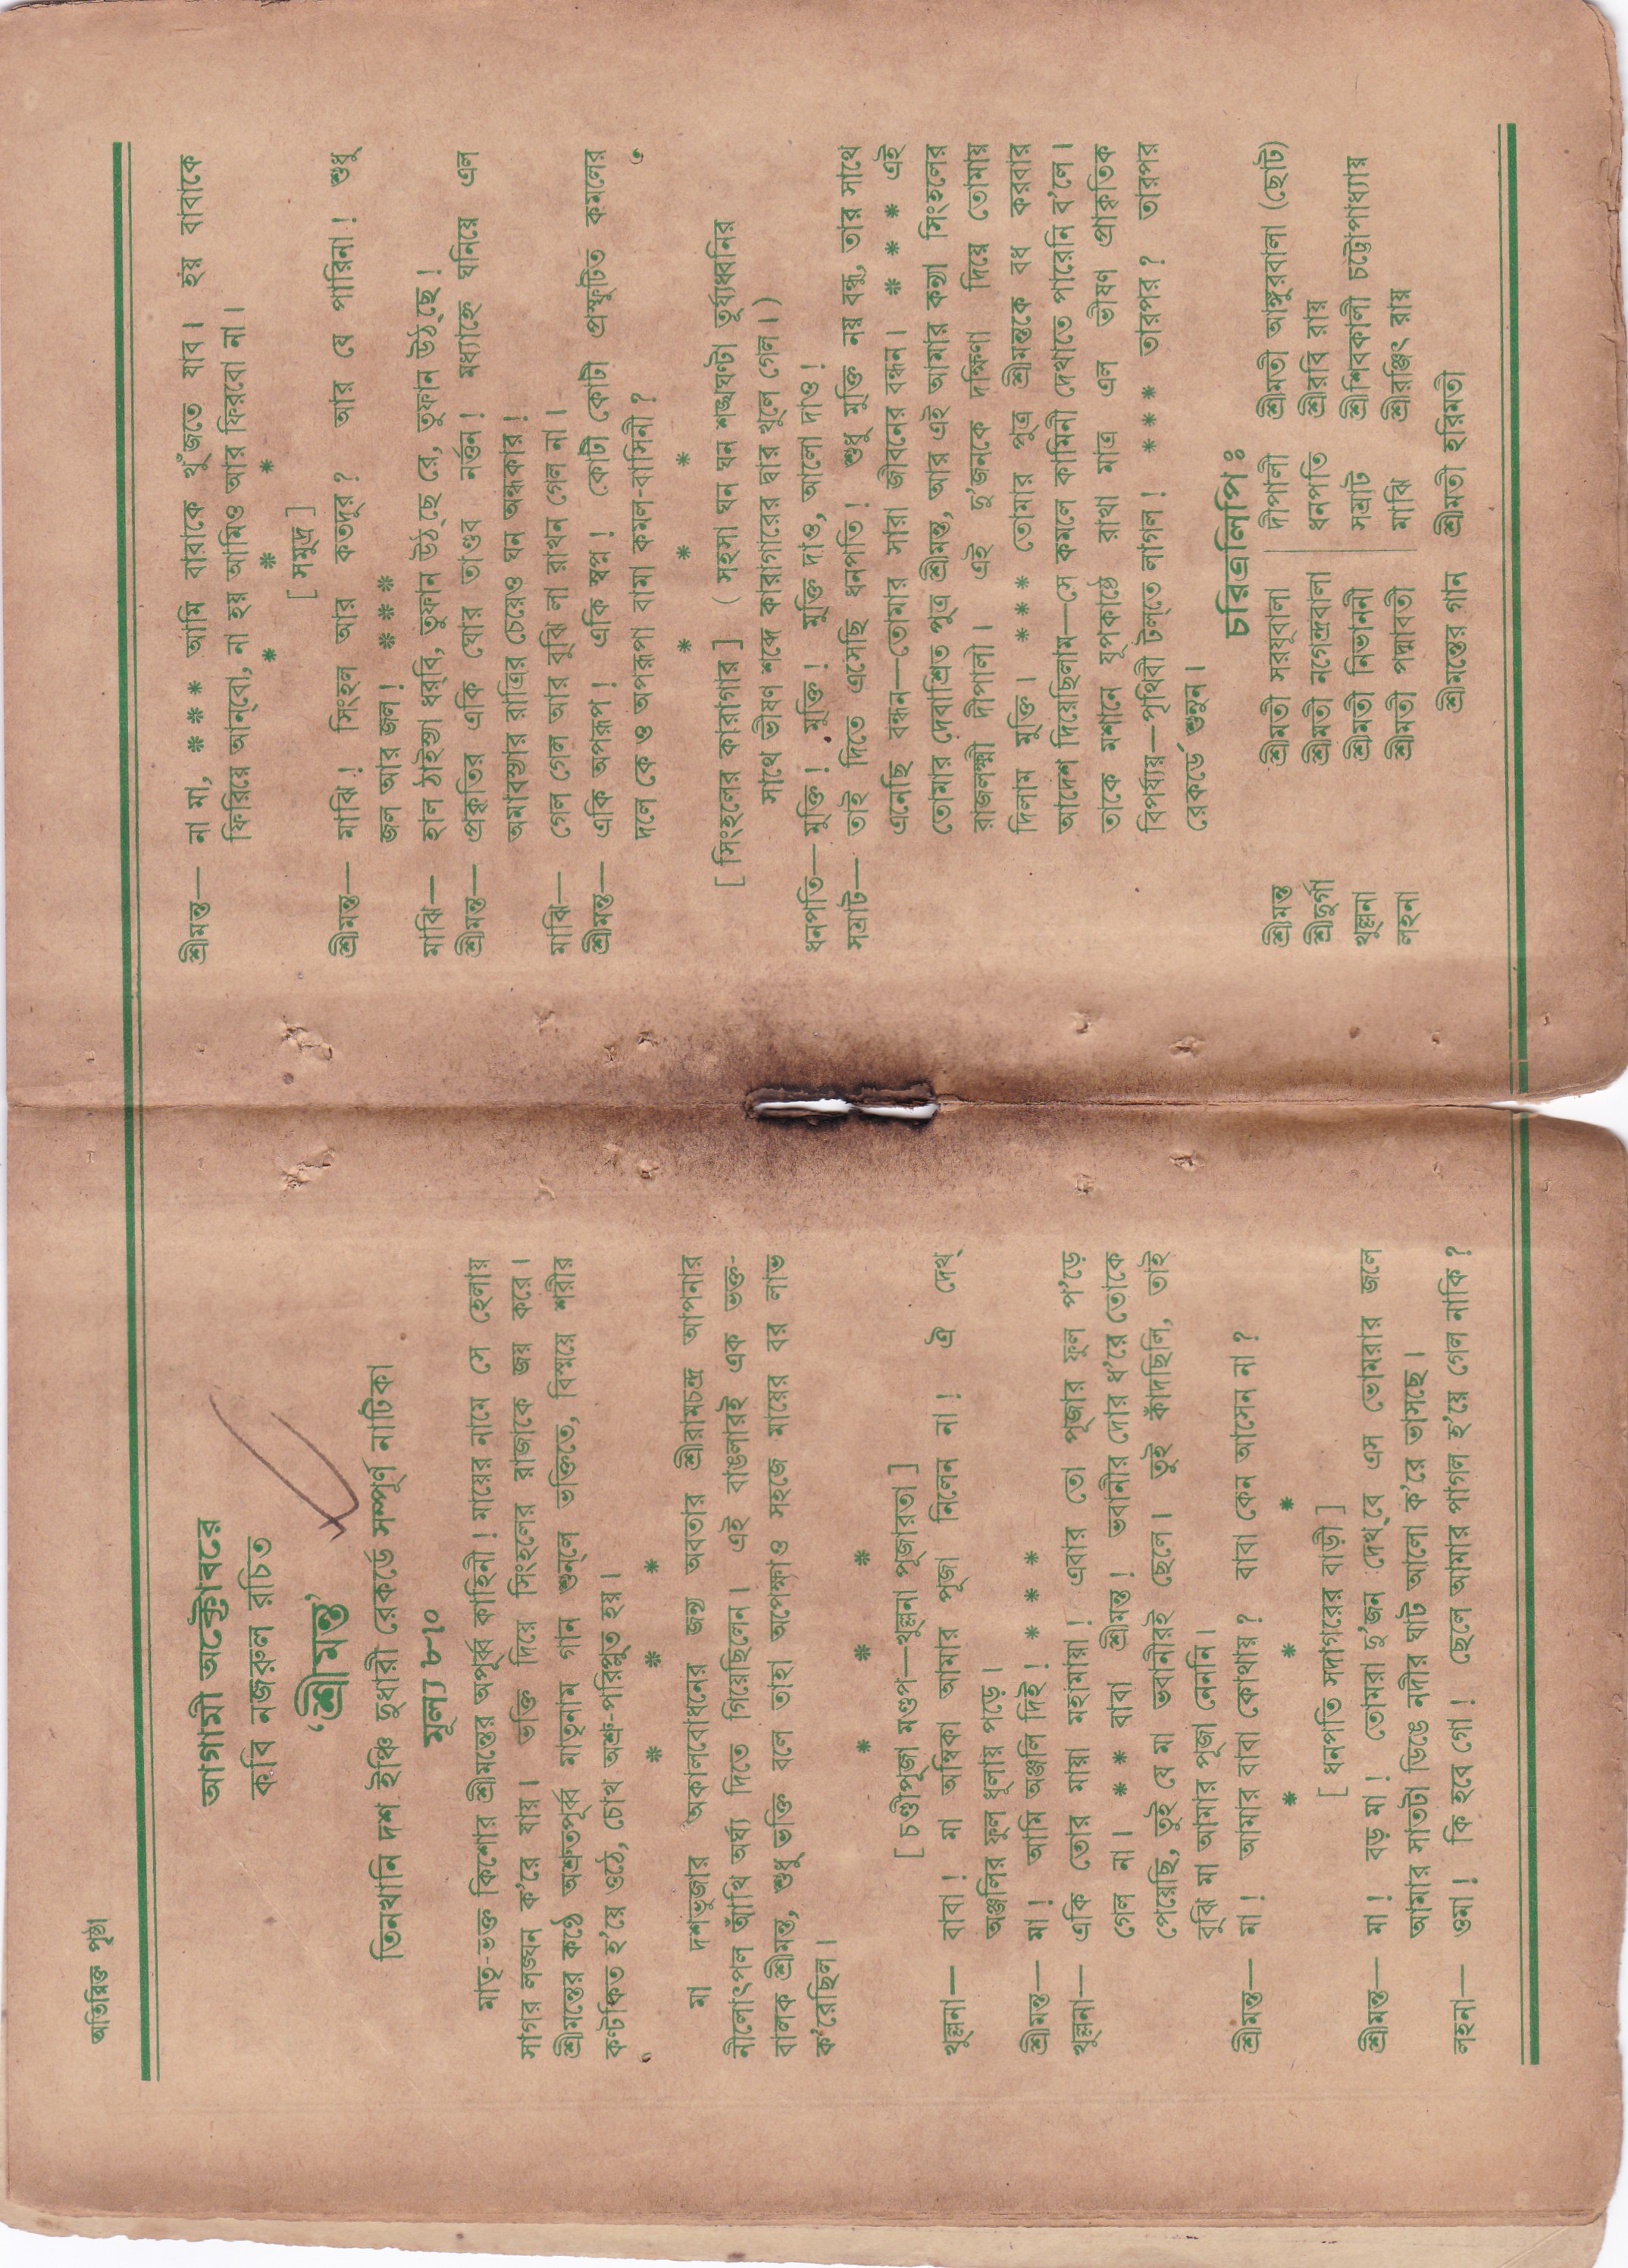 অতিরিক্ত পৃষ্ঠা
আগামী অক্টোবরে
কবি নজরুল রচিত
‘শ্রীমন্ত’
তিনখানি দশ ইঞ্চি দুধারী রেকর্ডে সম্পূর্ণ নাটিকা
মূল্য ৮৷০
মাতৃ-ভক্ত কিশোর শ্রীমন্তের অপূর্ব্ব কাহিনী! মায়ের নামে সে হেলায়
সাগর লঙ্ঘন ক’রে যায়। ভক্তি দিয়ে সিংহলের রাজাকে জয় করে।
শ্রীমন্তের কণ্ঠে অশ্রুতপূর্ব্ব মাতৃনাম গান শুন্‌লে ভক্তিতে, বিস্ময়ে শরীর
কণ্টকিত হ’য়ে ওঠে, চোখ অশ্রু-পরিপ্লুত হয়।
* * *
মা দশভূজার অকালবোধনের জন্য অবতার শ্রীরামচন্দ্র আপনার
নীলোৎপল আঁখি অর্ঘ্য দিতে গিয়েছিলেন। এই বাঙলারই এক ভক্ত-
বালক শ্রীমন্ত, শুধু ভক্তি বলে তাহা অপেক্ষাও সহজে মায়ের বর লাভ
ক’রেছিল।
* * *
[ চণ্ডীপূজা মণ্ডপ—খুল্লনা পূজারতা ]
খুল্লনা— বাবা! মা অম্বিকা আমার পূজা নিলেন না! ঐ দেখ্
অঞ্জলির ফুল ধূলায় পড়ে।
শ্রীমন্ত— মা! আমি অঞ্জলি দিই! * * *
খুল্লনা— একি তোর মায়া মহামায়া! এবার তো পূজার ফুল প’ড়ে
গেল না। * * বাবা শ্রীমন্ত! ভবানীর দোর ধ’রে তোকে
পেয়েছি, তুই যে মা ভবানীরই ছেলে। তুই কাঁদছিলি, তাই
বুঝি মা আমার পূজা নেননি।
শ্রীমন্ত— মা! আমার বাবা কোথায়? বাবা কেন আসেন না?
* * *
[ ধনপতি সদাগরের বাড়ী ]
শ্রীমন্ত— মা! বড় মা! তোমরা দু’জন দেখ্‌বে এস ভোমরার জলে
আমার সাতটা ডিঙে নদীর ঘাট আলো ক’রে ভাসছে।
লহনা— ওমা! কি হবে গো! ছেলে আমার পাগল হ’য়ে গেল নাকি?
শ্রীমন্ত— না মা, * * * আমি বাবাকে খুঁজতে যাব। হয় বাবাকে
ফিরিয়ে আন্‌বো, না হয় আমিও আর ফিরবো না।
* * *
[ সমুদ্র ]
শ্রীমন্ত— মাঝি! সিংহল আর কতদূর? আর যে পারিনা! শুধু
জল আর জল! * * *
মাঝি— হাল ঠাইস্যা ধর্‌বি, তুফান উঠ্‌ছে রে, তুফান উঠ্‌ছে!
শ্রীমন্ত— প্রকৃতির একি ঘোর তাণ্ডব নর্ত্তন! মধ্যাহ্নে ঘনিয়ে এল
অমাবস্যার রাত্রির চেয়েও ঘন অন্ধকার!
মাঝি— গেল গেল আর বুঝি লা রাখন গেল না।
শ্রীমন্ত— একি অপরূপ! একি স্বপ্ন! কোটী কোটী প্রস্ফুটিত কমলের
দলে কে ও অপরূপা বামা কমল-বাসিনী?
* * *
[ সিংহলের কারাগার ] ( সহসা ঘন ঘন শঙ্খঘণ্টা তূর্য্যধ্বনির
সাথে ভীষণ শব্দে কারাগারের দ্বার খুলে গেল। )
ধনপতি— মুক্তি! মুক্তি! মুক্তি দাও, আলো দাও!
সম্রাট— তাই দিতে এসেছি ধনপতি! শুধু মুক্তি নয় বন্ধু, তার সাথে
এনেছি বন্ধন—তোমার সারা জীবনের বন্ধন। * * * এই
তোমার দেবাশ্রিত পুত্র শ্রীমন্ত, আর এই আমার কন্যা সিংহলের
রাজলক্ষ্মী দীপালী। এই দু’জনকে দক্ষিণা দিয়ে তোমায়
দিলাম মুক্তি। * * * তোমার পুত্র শ্রীমন্তকে বধ করবার
আদেশ দিয়েছিলাম—সে কমলে কামিনী দেখাতে পারেনি ব’লে।
তাকে মশানে যূপকাষ্ঠে রাখা মাত্র এল ভীষণ প্রাকৃতিক
বিপর্য্যয়—পৃথিবী টল্‌তে লাগল! * * * তারপর? তারপর
রেকর্ডে শুনুন।
চরিত্রলিপি ঃ
শ্রীমন্ত শ্রীমতী সরযূবালা দীপালী শ্রীমতী আঙ্গুরবালা (ছোট)
শ্রীদুর্গা শ্রীমতী নগেন্দ্রবালা ধনপতি শ্রীরবি রায়
খুল্লনা শ্রীমতী নিভাননী সম্রাট শ্রীশিবকালী চট্টোপাধ্যায়
লহনা শ্রীমতী পদ্মাবতী মাঝি শ্রীরঞ্জিৎ রায়
শ্রীমন্তের গান শ্রীমতী হরিমতী